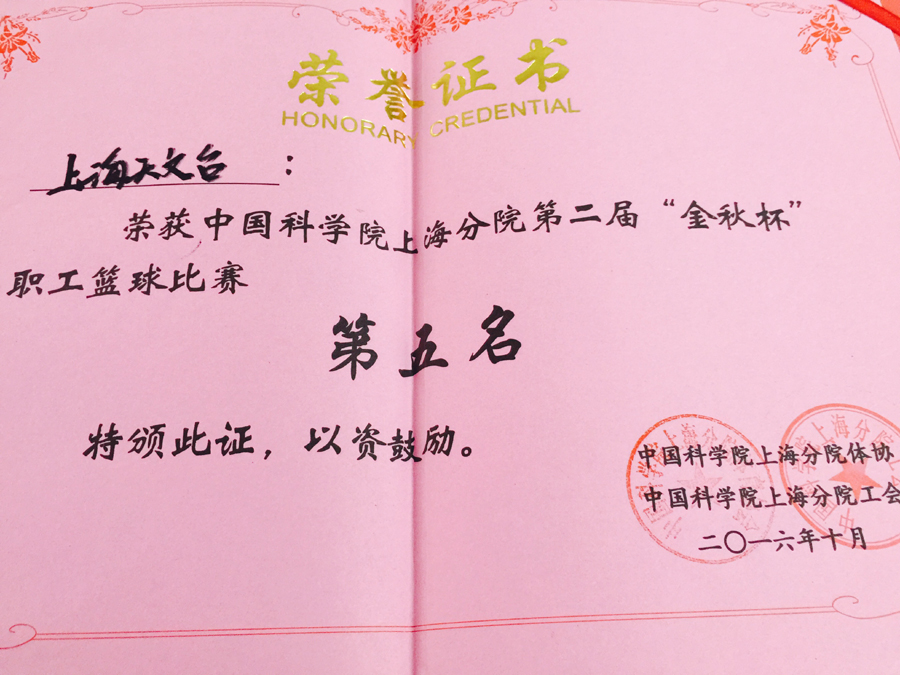 荣誉证书
HONORARY CREDENTIAL
上海天文台：
荣获中国科学院上海分院第二届“金秋杯”
职工篮球比赛
第五名
特颁此证，以资鼓励。
中国科学院上海分院体协
中国科学院上海分院工会
二〇一六年十月